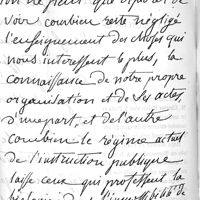 on ne peut que déplorer de
voir combien reste négligé
l'enseignement des choses qui
nous intéressent le plus, la
connaissance de notre propre
organisation et de ses actes,
d'une part, et de l'autre
combien le régime actuel
de l'instruction publique
laisse ceux qui professent la
biologie dans l'impossibilité de